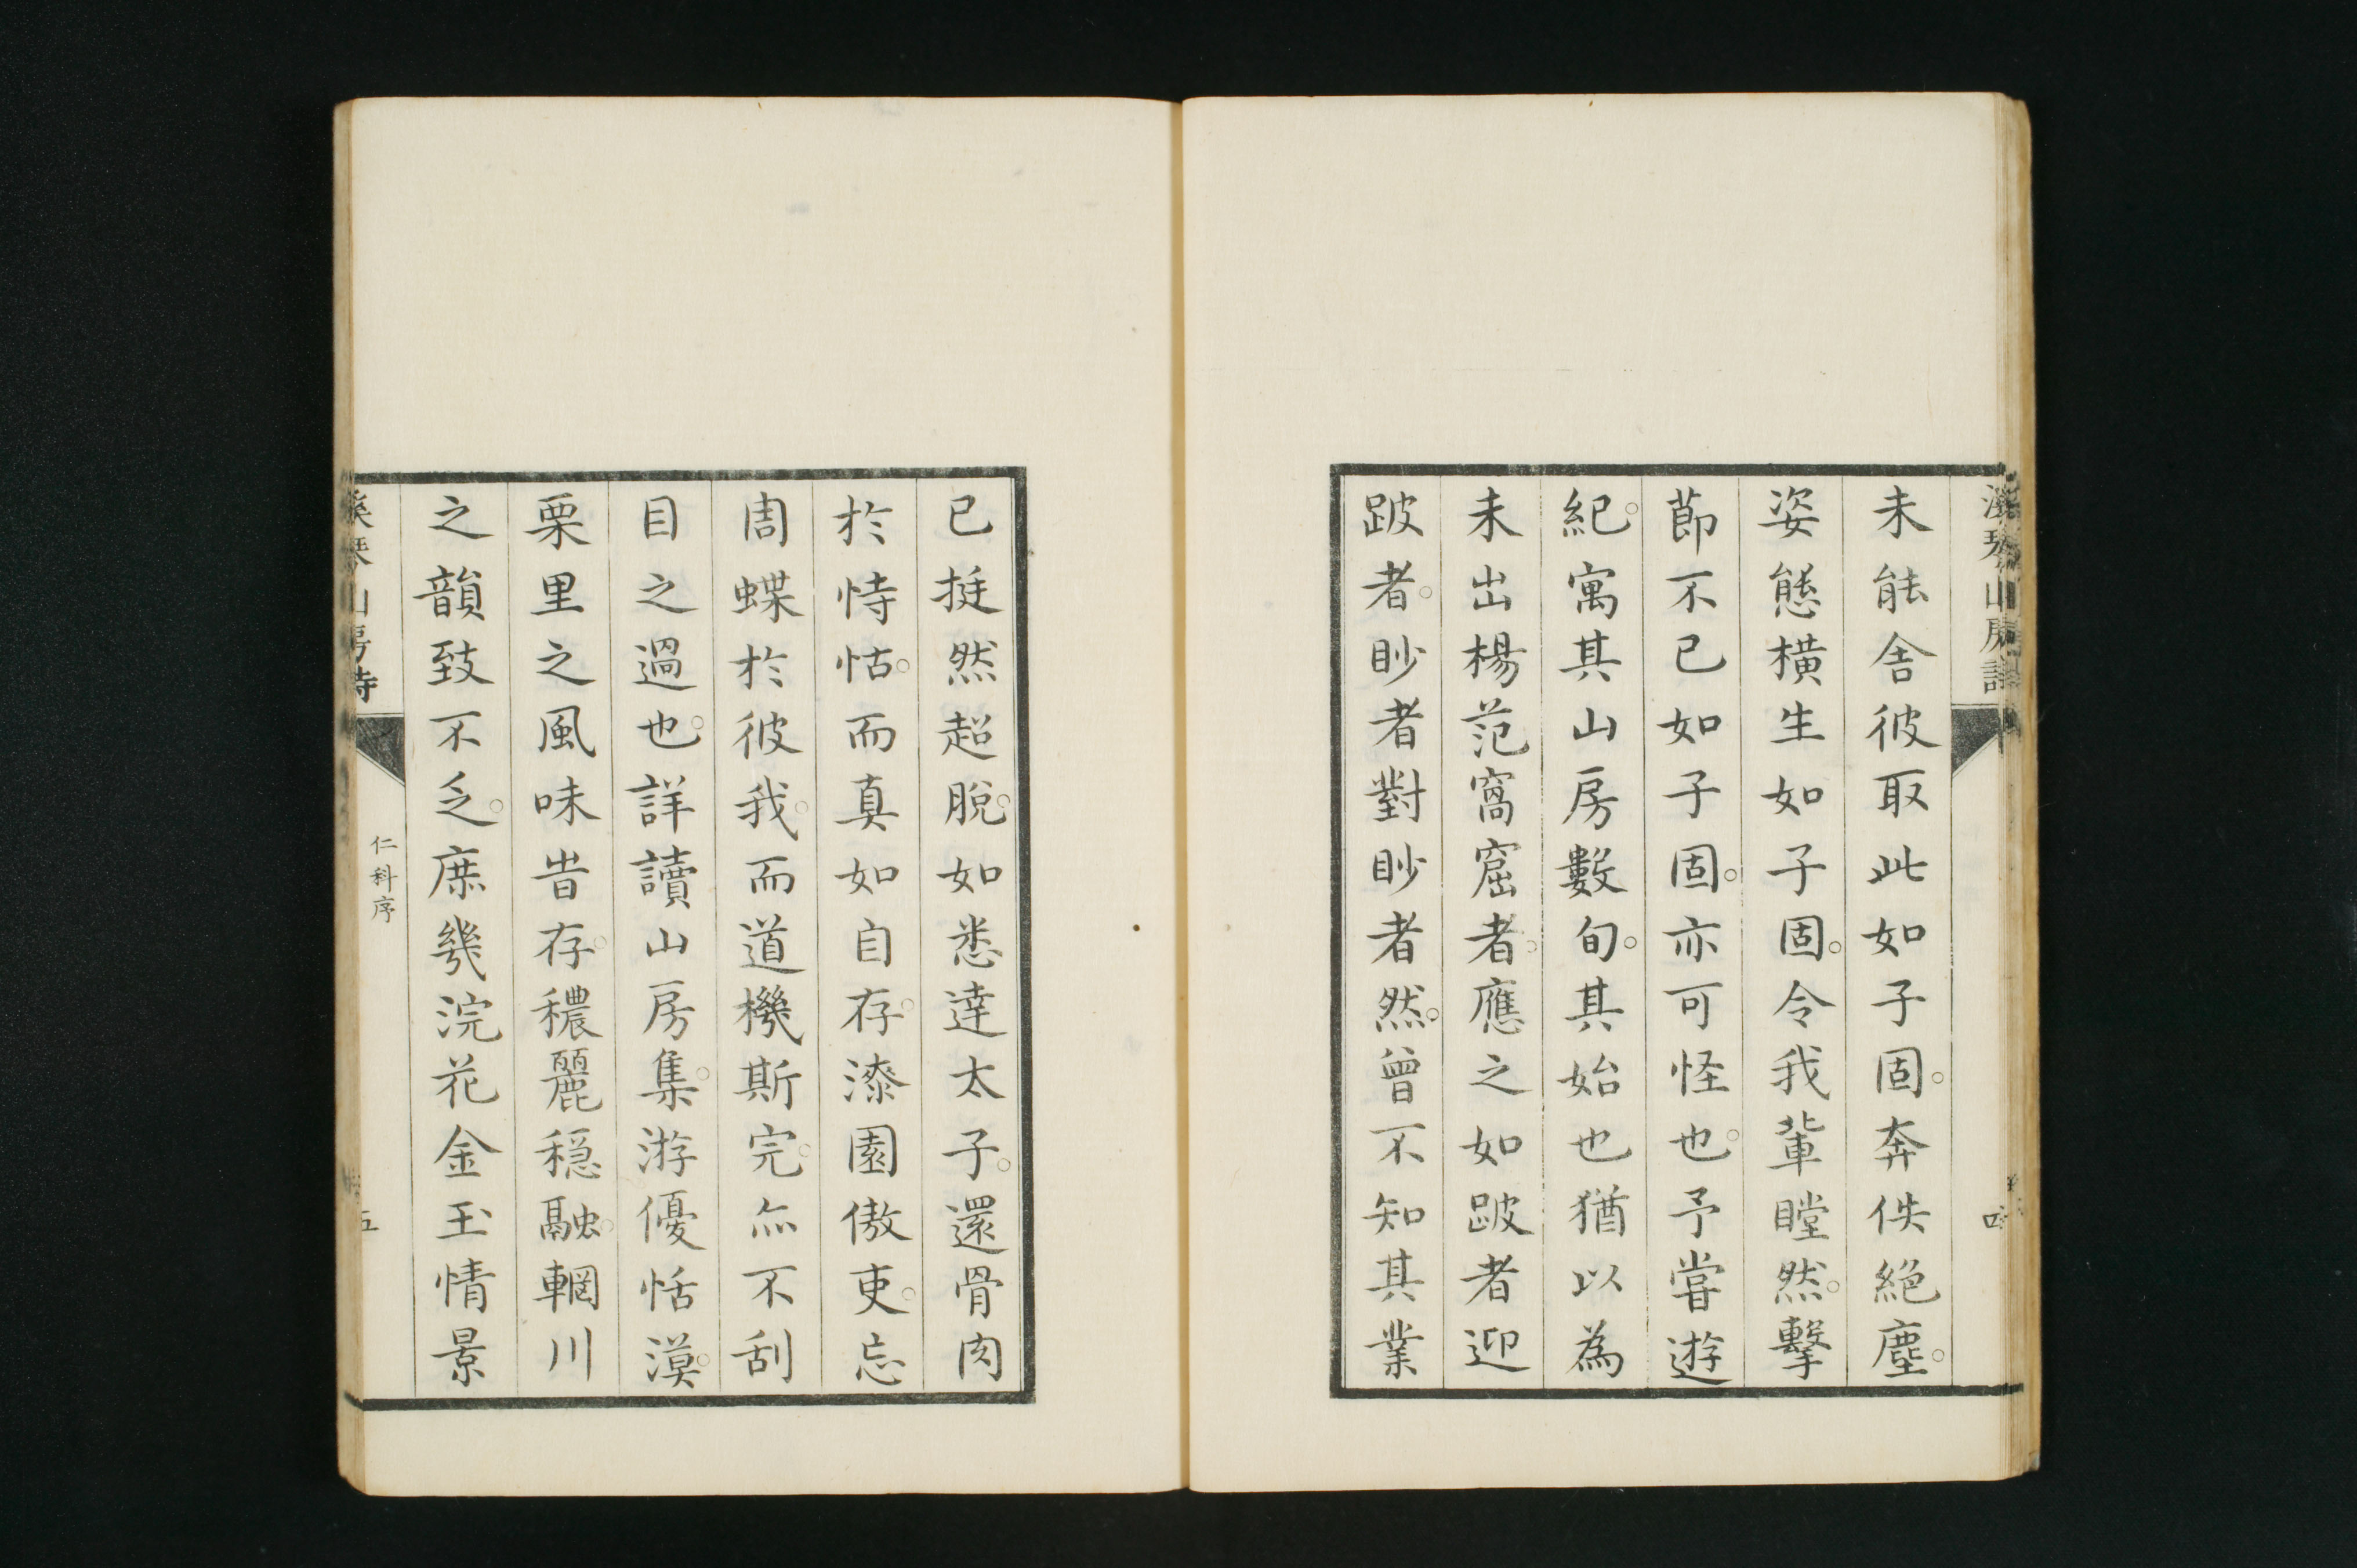 未能舍彼取此如子固。奔佚絕塵。
姿態橫生如子固。令我輩瞠然。擊
節不已如子固。亦可怪也。予嘗遊
紀。寓其山房數旬。其始也猶以為
未出楊范窩窟者。應之如跛者迎
跛者。眇者對眇者然。曾不知其業
已挺然超脫。如悉達太子。還骨肉
於恃怙。而真如自存。漆園傲吏。忘
周蝶於彼我。而道機斯完。亦不刮
目之過也。詳讀山房集。游優恬漠。
栗里之風味昔存。穠麗穩融。輞川
之韻致不乏。庶幾浣花金玉情景
仁科序
五